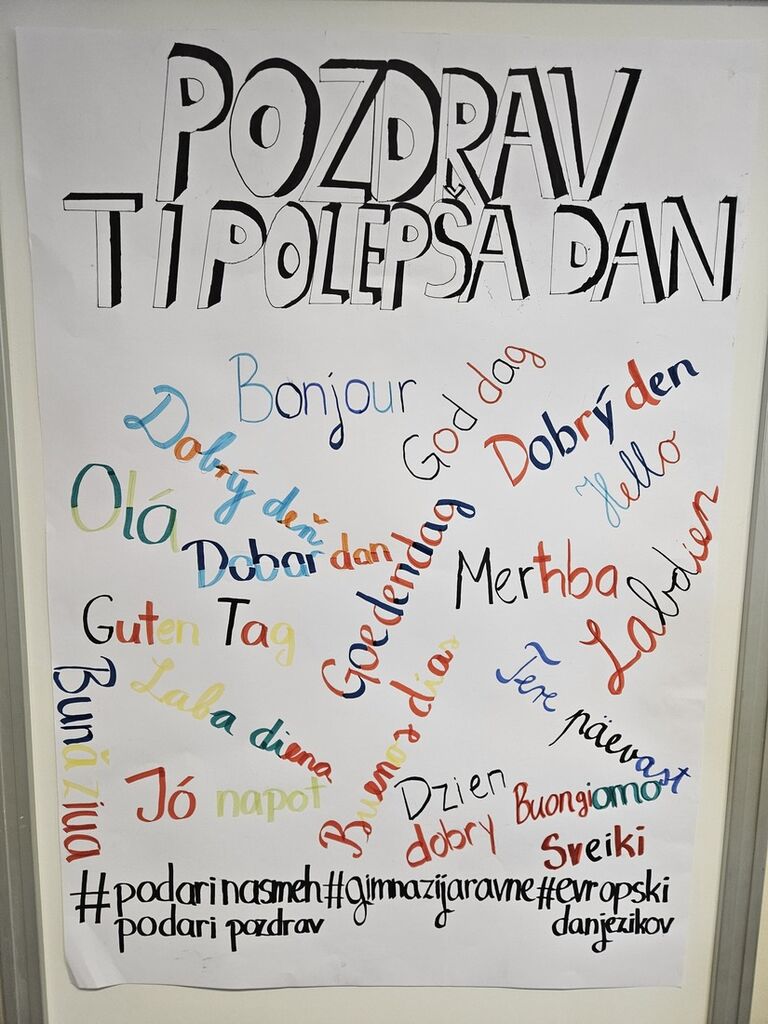 POZDRAV
TI POLEPŠA DAN
Bonjour
God dag
Dobrý den
Dobrý deň
Hello
Olá
Dobar dan
Goedendag
Merhba
Labdien
Guten Tag
Laba diena
Bună ziua
Buenos días
Tere päevast
Jó napot
Dzien dobry
Buongiorno
Sveiki
#podarinasmeh#gimnazijaravne#evropski
podari pozdrav danjezikov